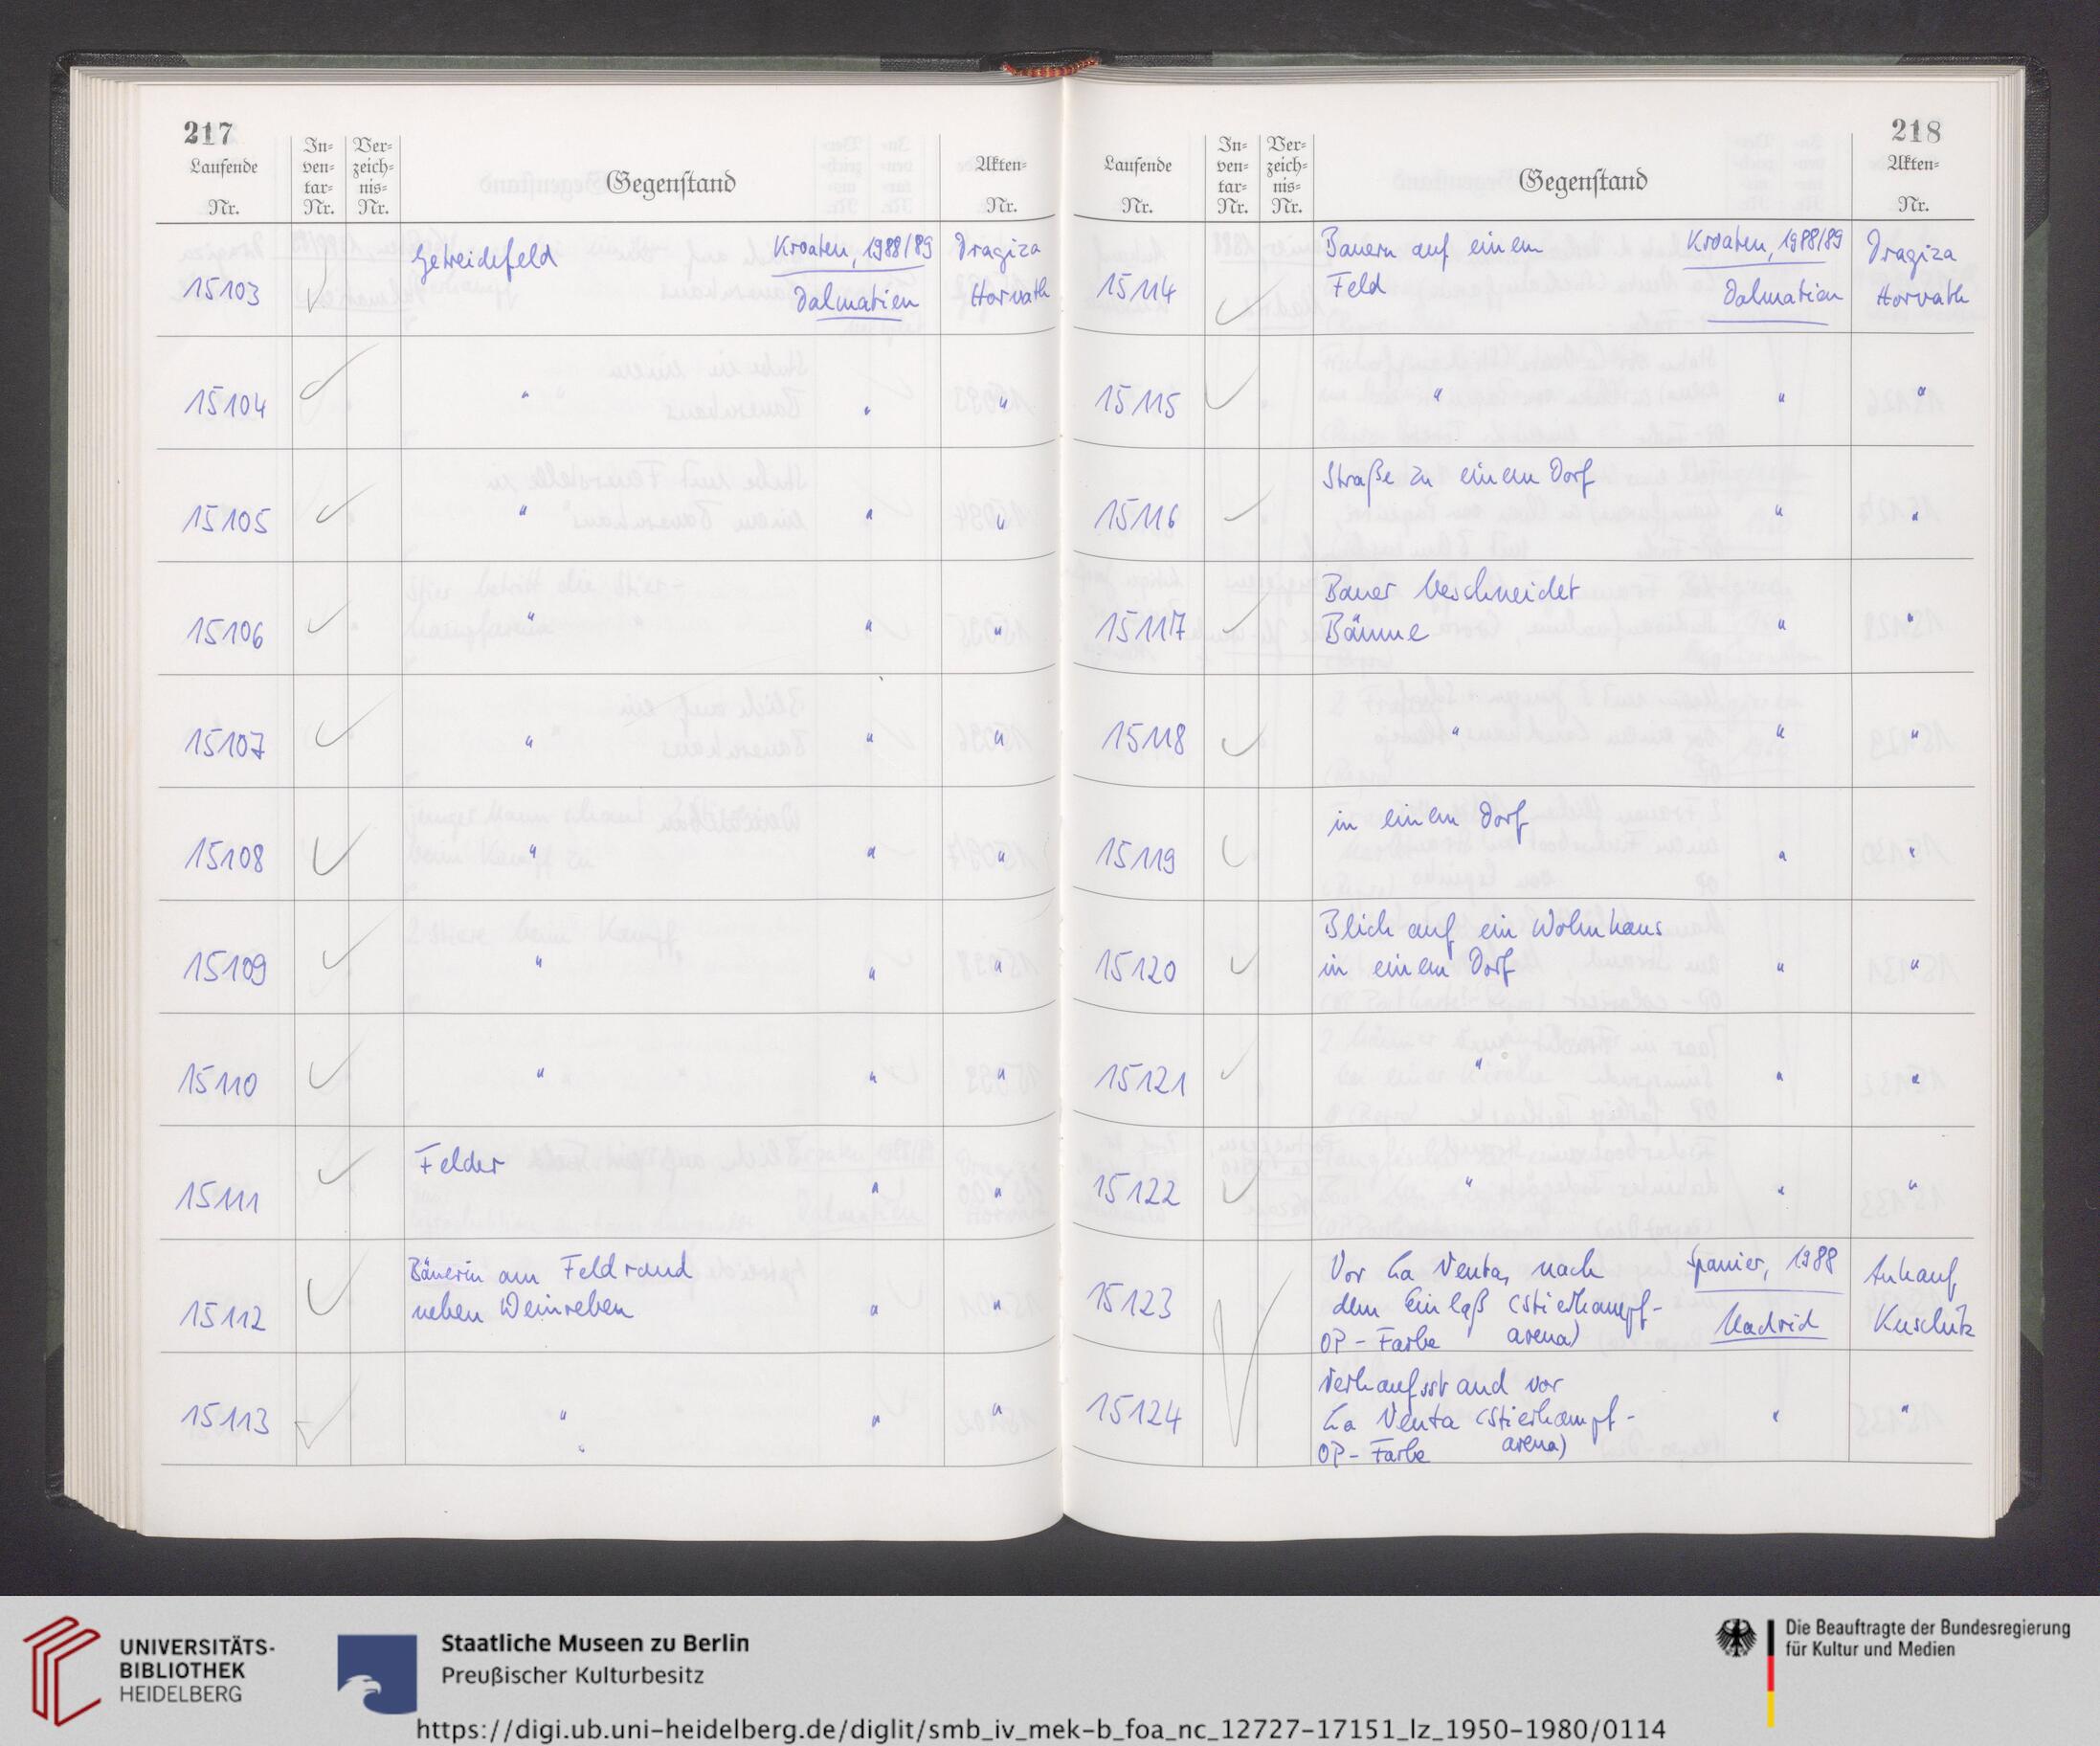 217
Laufende Nr.
In-ven-tar-Nr.
Ver-zeich-nis-Nr.
Gegenstand
Akten-Nr.
15103 Getreidefeld Kroatien, 1988/89 Dragiza
Dalmatien Horvath
15104 " " "
15105 " " "
15106 " " "
15107 " " "
15108 " " "
15109 " " "
15110 " " "
15111 Felder " "
15112 Bäuerin am Feldrand
neben Weinreben " "
15113 " " "
218
Laufende Nr.
In-ven-tar-Nr.
Ver-zeich-nis-Nr.
Gegenstand
Akten-Nr.
15114 Bauern auf einem Kroatien, 1988/89 Dragiza
Feld Dalmatien Horvath
15115 " " "
15116 Straße zu einem Dorf " "
15117 Bauer beschneidet
Bäume " "
15118 " " "
15119 in einem Dorf " "
15120 Blick auf ein Wohnhaus
in einem Dorf " "
15121 " " "
15122 " " "
15123 Vor La Venta, nach Spanier, 1988 Ankauf
dem Einlaß (Stierkampf-
OP - Farbe arena) Madrid
15124 Verkaufsstand vor
La Venta (Stierkampf- " "
OP - Farbe arena)
UNIVERSITÄTS-
BIBLIOTHEK
HEIDELBERG
Staatliche Museen zu Berlin
Preußischer Kulturbesitz
Die Beauftragte der Bundesregierung
für Kultur und Medien
https://digi.ub.uni-heidelberg.de/diglit/smb_iv_mek-b_foa_nc_12727-17151_lz_1950-1980/0114